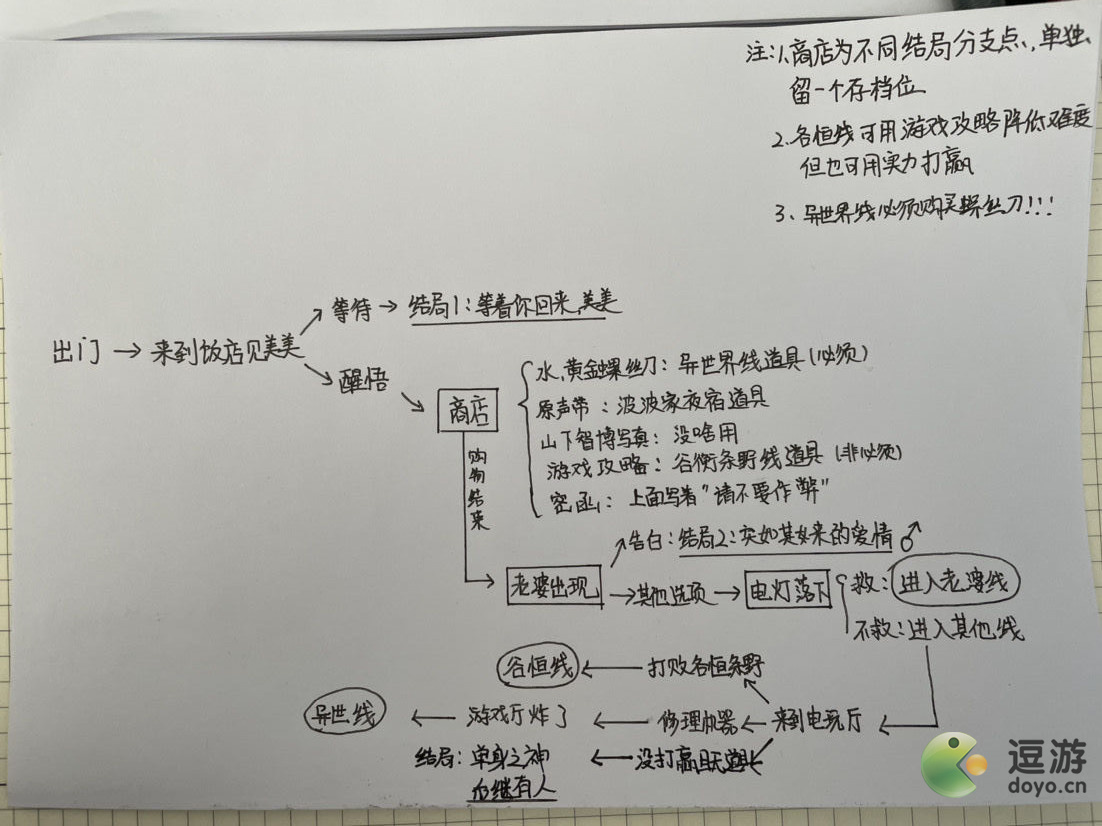 注:1、商店为不同结局分支点,单独
留一个存档位
2、谷恒线可用游戏攻略降低难度
但也可用实力打赢
3、异世界线必须购买螺丝刀!!!
等待 → 结局1:等着你回来,美美
出门 → 来到饭店见美美
醒悟
商店
水,黄金螺丝刀:异世界线道具(必须)
原声带:波波家夜宿道具
山下智博写真:没啥用
游戏攻略:谷衡条野线道具(非必须)
密函:上面写着"请不要作弊"
购物结束
告白:结局2:突如其来的爱情♂
老婆出现 → 其他选项 → 电灯落下
救:进入老婆线
不救:进入其他线
谷恒线 ← 打败谷恒条野
异世线 ← 游戏厅炸了 ← 修理机器 ← 来到电玩厅
结局:单身之神 ← 没打赢且无道具
后继有人
逗游
doyo.cn